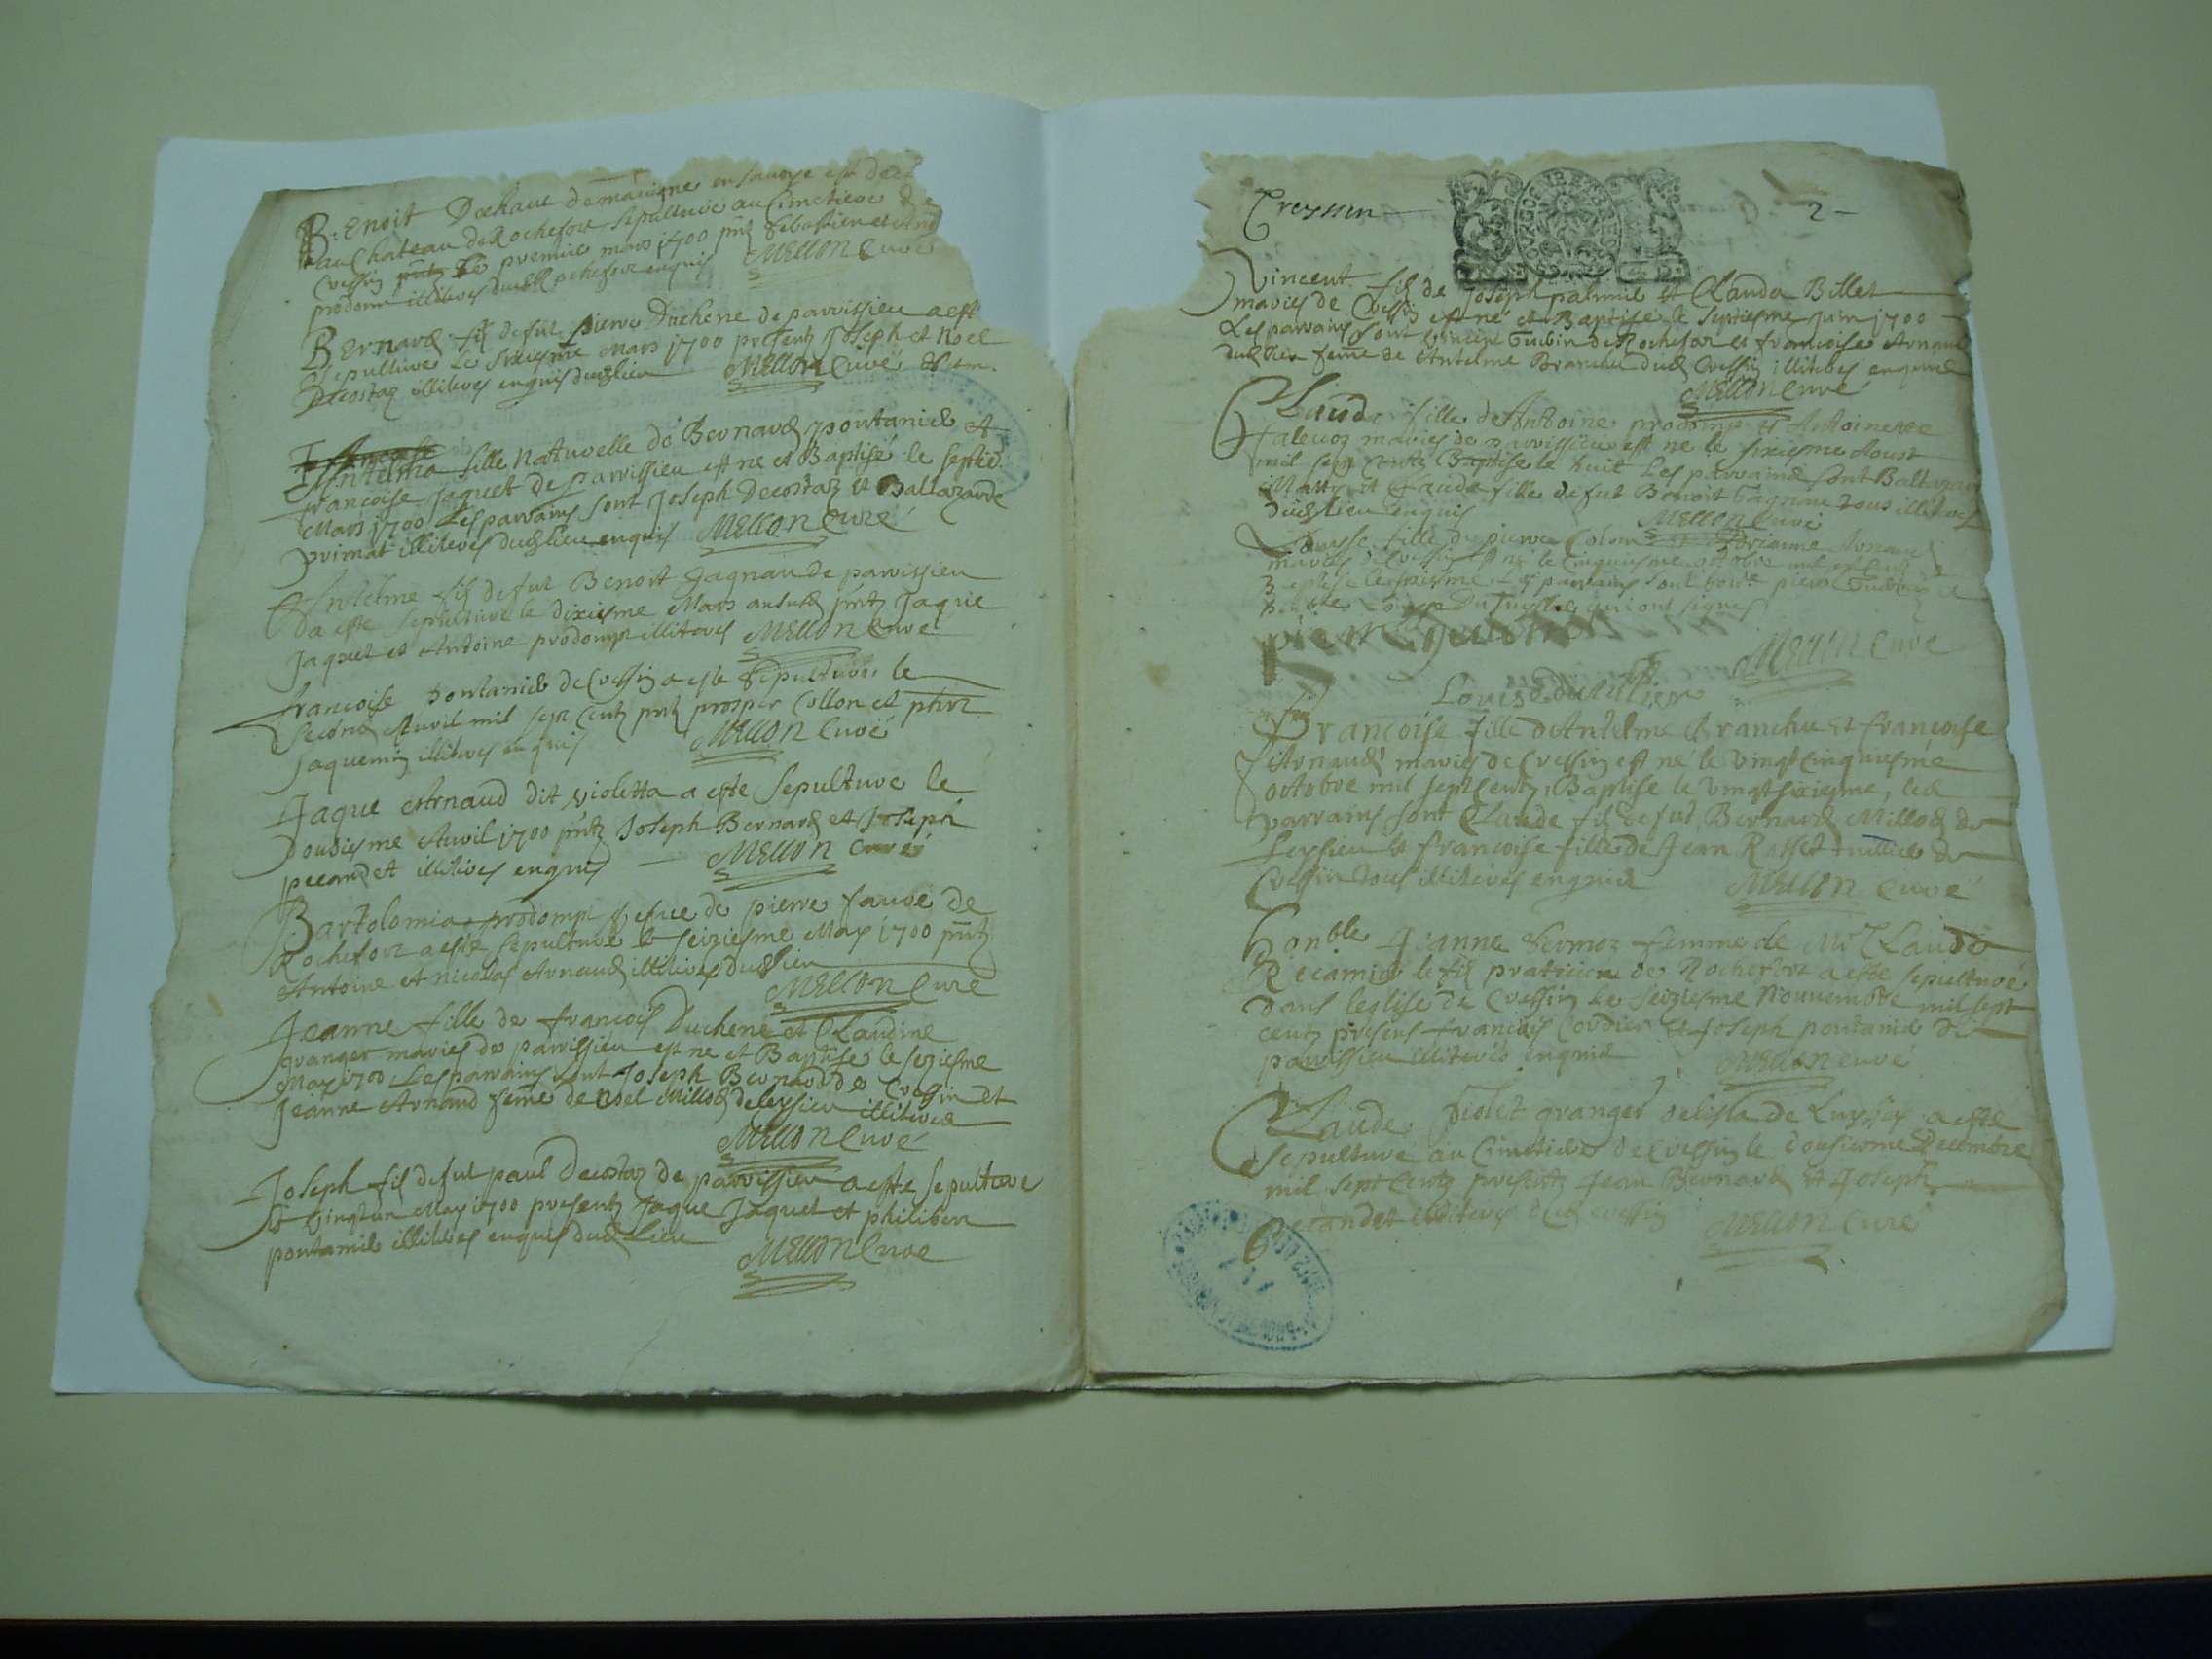 Benoit Dochaut de en savoye est dec
au Chateau de Rochefort sepulturé au Cimetiere de
Cressin le premier mars 1700 pnts Sebastien et Ant
prodomp illiteres dud Rochefort enquis MELLON Curé
Bernard fils de fut pierre Duchene de parvissieu a esté
sepulturé le sixiesme Mars 1700 presents Joseph et Noel
Decostaz illiteres enquis dud lieu MELLON Curé
Anselma fille naturelle de Bernard pontanier et
francoise Jaquet de parvissieu est né et Baptisé le septie
Mars 1700 Les parrains sont Joseph Decostaz et Baltazarde
primat illiteres dud lieu enquis MELLON Curé
Antelme fils de fut Benoit Gagnau de parvissieu
a esté sepulturé le dixiesme Mars pnts Jaque
Jaquet et Antoine prodomp illiteres MELLON Curé
francoise pontanier de Cressin a esté sepulturée le
second Auvil mil sept Cents pnts prosper Collon et
Jaquemin illiteres enquis MELLON Curé
Jaque Arnaud dit violetta a esté sepulturé le
Dousiesme Auvil 1700 pnts Joseph Bernard et Joseph
perandet illiteres enquis MELLON Curé
Bartolomia prodomp vefue de pierre faure de
Rochefort a esté sepulturé le seiziesme May 1700 pnts
Antoine et nicolas Arnaud illiteres dud lieu
MELLON Curé
Jeanne fille de francois Duchene et Claudine
granger mariés de parvissieu est né et Baptisé le seziesme
May 1700 Les parrains sont Joseph Bernard de Cressin et
Jeanne Arnaud feme de Noel Millod de leysieu illiteres
MELLON Curé
Joseph fils de fut paul Decostaz de parvissieu a esté sepulturé
le vingtun May 1700 presents Jaque Jaquet et philibert
pontanier illiteres enquis dud Lieu
MELLON Curé
Creyssin
2
BOURGOG BRESSE
vincent fils de Joseph palmier et Clauda Billet
mariés de Cressin est né et Baptisé le septiesme Juin 1700
Les parrains sont vincent Gubin de Rochefort et francoise Arnaud
dud lieu feme de Antelme Branche dud Cressin illiteres enquis
MELLON Curé
Clauda fille de Antoine prodomp et Antoinette
Jalevoz mariés de parvissieu est né le sixiesme Aoust
mil sept Cents Baptisé le huit Les parrains sont Baltazar
Marty et Claude fille de fut Benoit Gagnau tous illiteres
dud lieu enquis MELLON Curé
Louyse fille de pierre Colom et Arnaud
mariés de Cressin est né le Cinquiesme octobre mil sept Cents
Baptisé le Les parrains sont pierre
Louyse qui ont signés
MELLON Curé
francoise fille d'Antelme Branche et francoise
Arnaud mariés de Cressin est né le vingt Cinquiesme
octobre mil sept Cents, Baptisé le vingt sixiesme, les
parrains sont Claude fils de fut Bernard Millod de
Leysieu et francoise fille de Jean Rosset de
Cressin tous illiteres enquis MELLON Curé
honble Jeanne Vermoz femme de Mr Claude
Recamier le fils praticien de Rochefort a esté sepulturé
dans leglise de Cressin le seiziesme Nouvembre mil sept
cents presens francois Cordier et Joseph pontanier de
parvissieu illiteres enquis MELLON Curé
Claude violet granger a esté
sepulturé au Cimetiere de Cressin le dousieme Decembre
mil sept Cents presents Jean Bernard et Joseph
perandet illiteres dud Cressin MELLON Curé